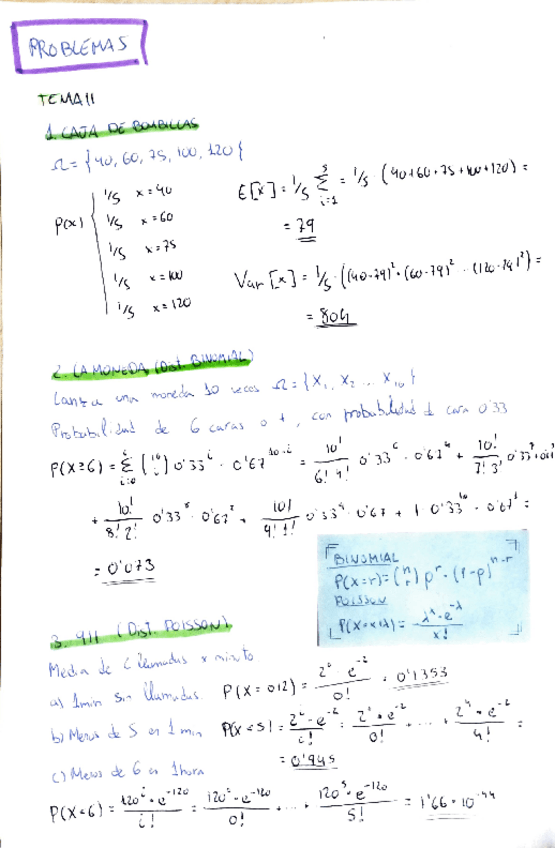 PROBLEMAS
TEMA 11
1. CAJA DE BOMBILLAS
Ω = {40, 60, 75, 100, 120}
P(x) 1/5 x=40
1/5 x=60
1/5 x=75
1/5 x=100
1/5 x=120
E[x] = 1/5 Σ i=1 5 = 1/5 · (40+60+75+100+120) =
= 79
Var[x] = 1/5 · ((40-79)² · (60-79)² · · (120-79)²) =
= 804
2. LA MONEDA (Dist. BINOMIAL)
una moneda 10 veces Ω = {X₁, X₂ ... X₁₀}
Probabilidad de 6 caras o +, con probabilidad 1 cara 0'33
P(X≥6) = Σ i=0 (10 i) 0'33^i · 0'67^10-i = 10!/6!4! 0'33^6 · 0'67^4 + 10!/7!3! 0'33^7 · 0'67^3
+ 10!/8!2! 0'33^8 · 0'67^2 + 10!/9!1! 0'33^9 · 0'67 + 1 · 0'33^10 · 0'67^0 =
= 0'073
BINOMIAL
P(X=r) = (n r) p^r · (1-p)^n-r
POISSON
P(X=x|λ) = λ^x · e^-λ / x!
3. 911 (Dist. POISSON)
Media de 2 llamadas x minuto
a) 1min sin llamadas P(X=0|2) = 2^0 · e^-2 / 0! = 0'1353
b) Menos de 5 en 1 min P(X<5) = 2^i · e^-2 / i! = 2^0 · e^-2 / 0! + ... + 2^4 · e^-2 / 4! =
= 0'945
c) Menos de 6 en 1 hora
P(X<6) = 120^i · e^-120 / i! = 120^0 · e^-120 / 0! + ... + 120^5 · e^-120 / 5! = 1'66 · 10^-44